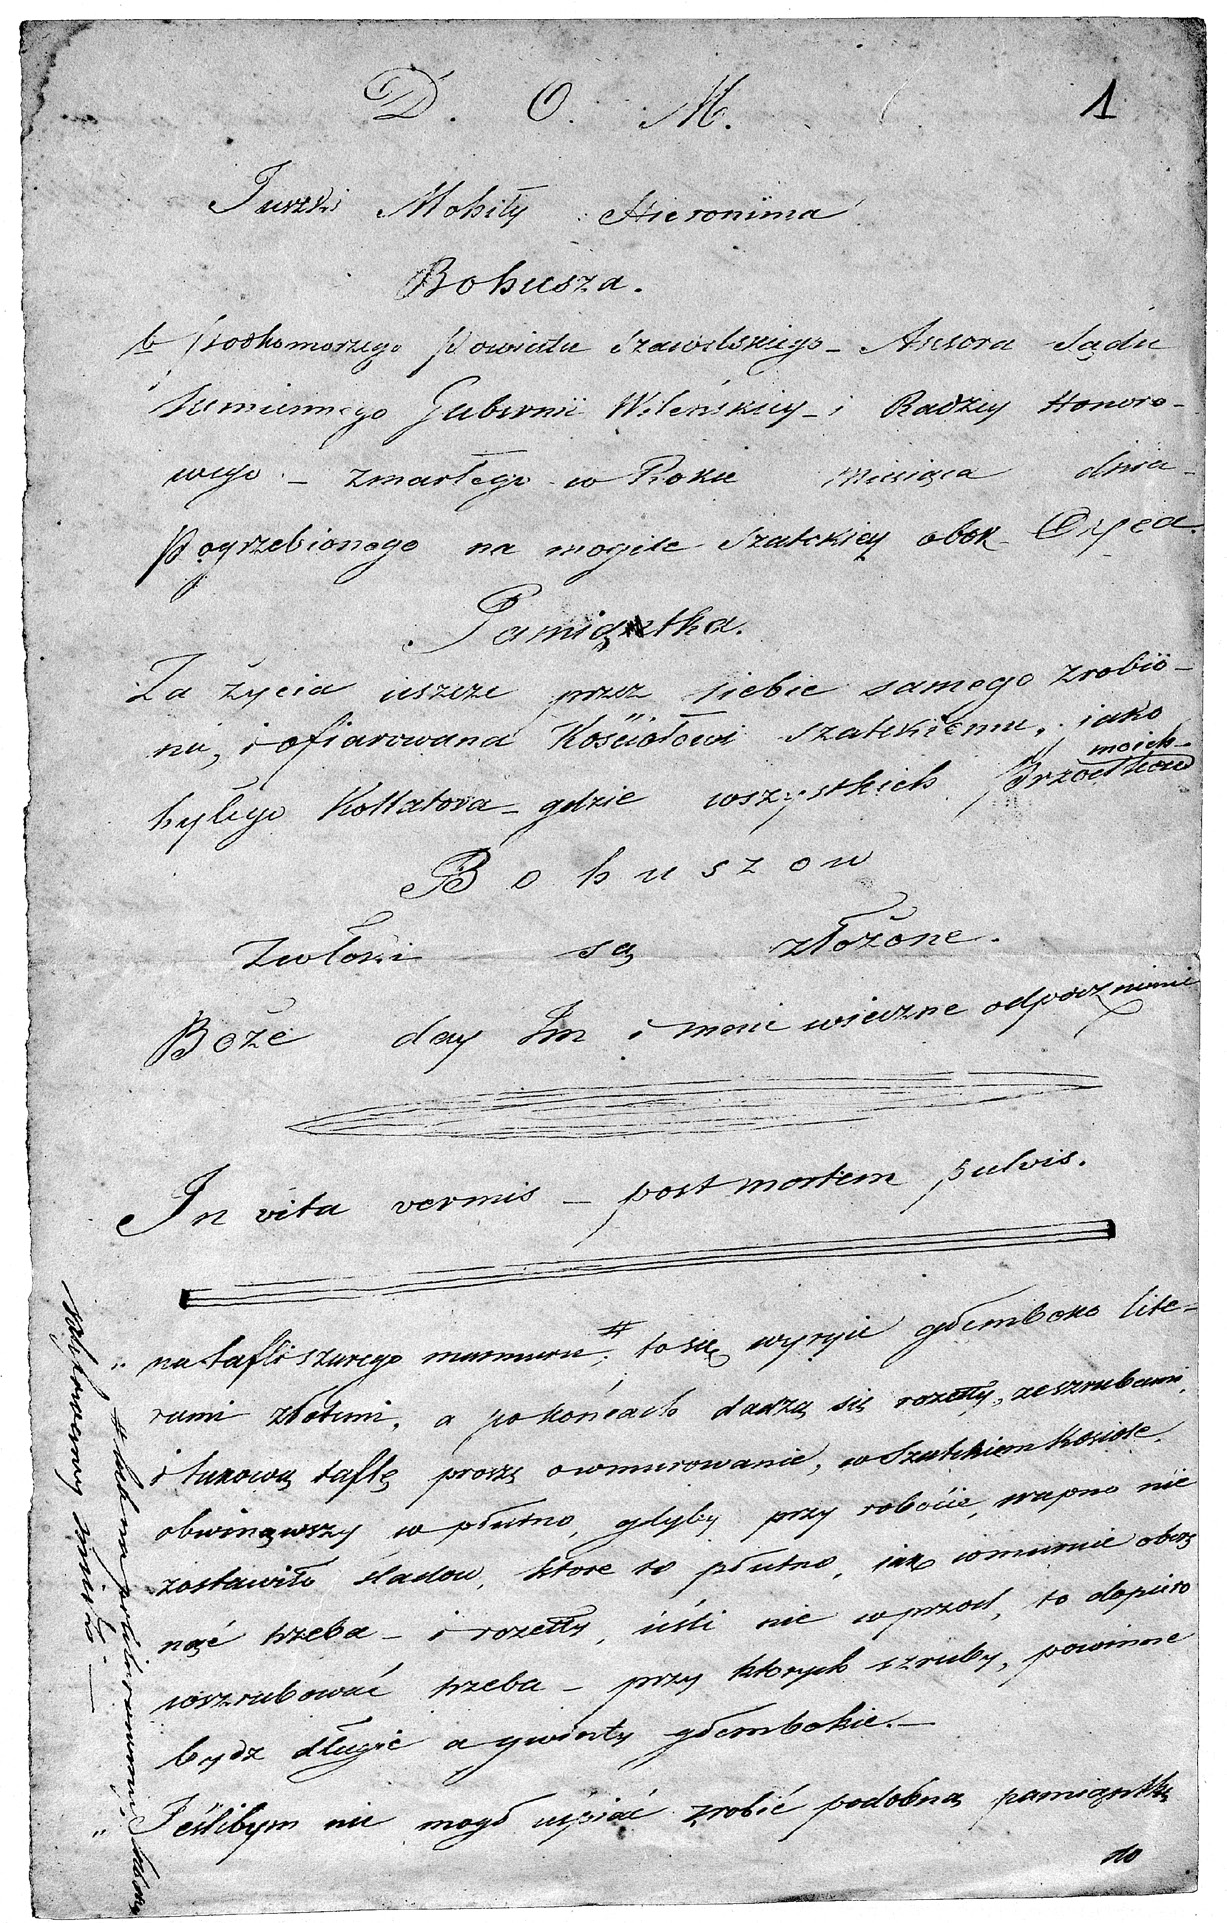 D. O. M.
1
Juszki Mohiły Hieronima
Bohusza.
b Podkomorzego Powiatu Szawelskiego – Assesora Sądu
Sumiennego Gubernii Wileńskiey – i Radzcy Honoro-
wego – zmarłego w Roku Miesiąca dnia –
Pogrzebionego na mogile Szatskiey obok Oyca.
Pamiątka.
Za życia ieszcze przez siebie samego zrobio-
na, i ofiarowana Kościołowi szatskiemu, iako
moich
byłego Kollatora – gdzie wszystkich Przodkow
Bohuszow
Zwłoki są złożone.
Boże day Im i mnie wieczne odpocznienie
In vita vermis – post mortem pulvis.
„ na tafli szarego marmuru # to się wyryie głemboko lite-
rami złotemi, a po końcach dadzą się rozetty, ze szrubami,
i takową taflę proszę owmurowanie, w Szatskiem Kosciole.
obwinąwszy w płutno, gdyby przy robocie, wapno nie
zostawiło sladow, ktore to płutno, iak wmurnie obrz
nąć trzeba – i rozetty, ieśli nie wprzod, to dopiero
wszrubować trzeba – przy ktorych szruby, powinne
bydz długie a gwinty głembokie. –
„ Jeślibym nie mogł uiściać zrobić podobną pamiąntkę
do